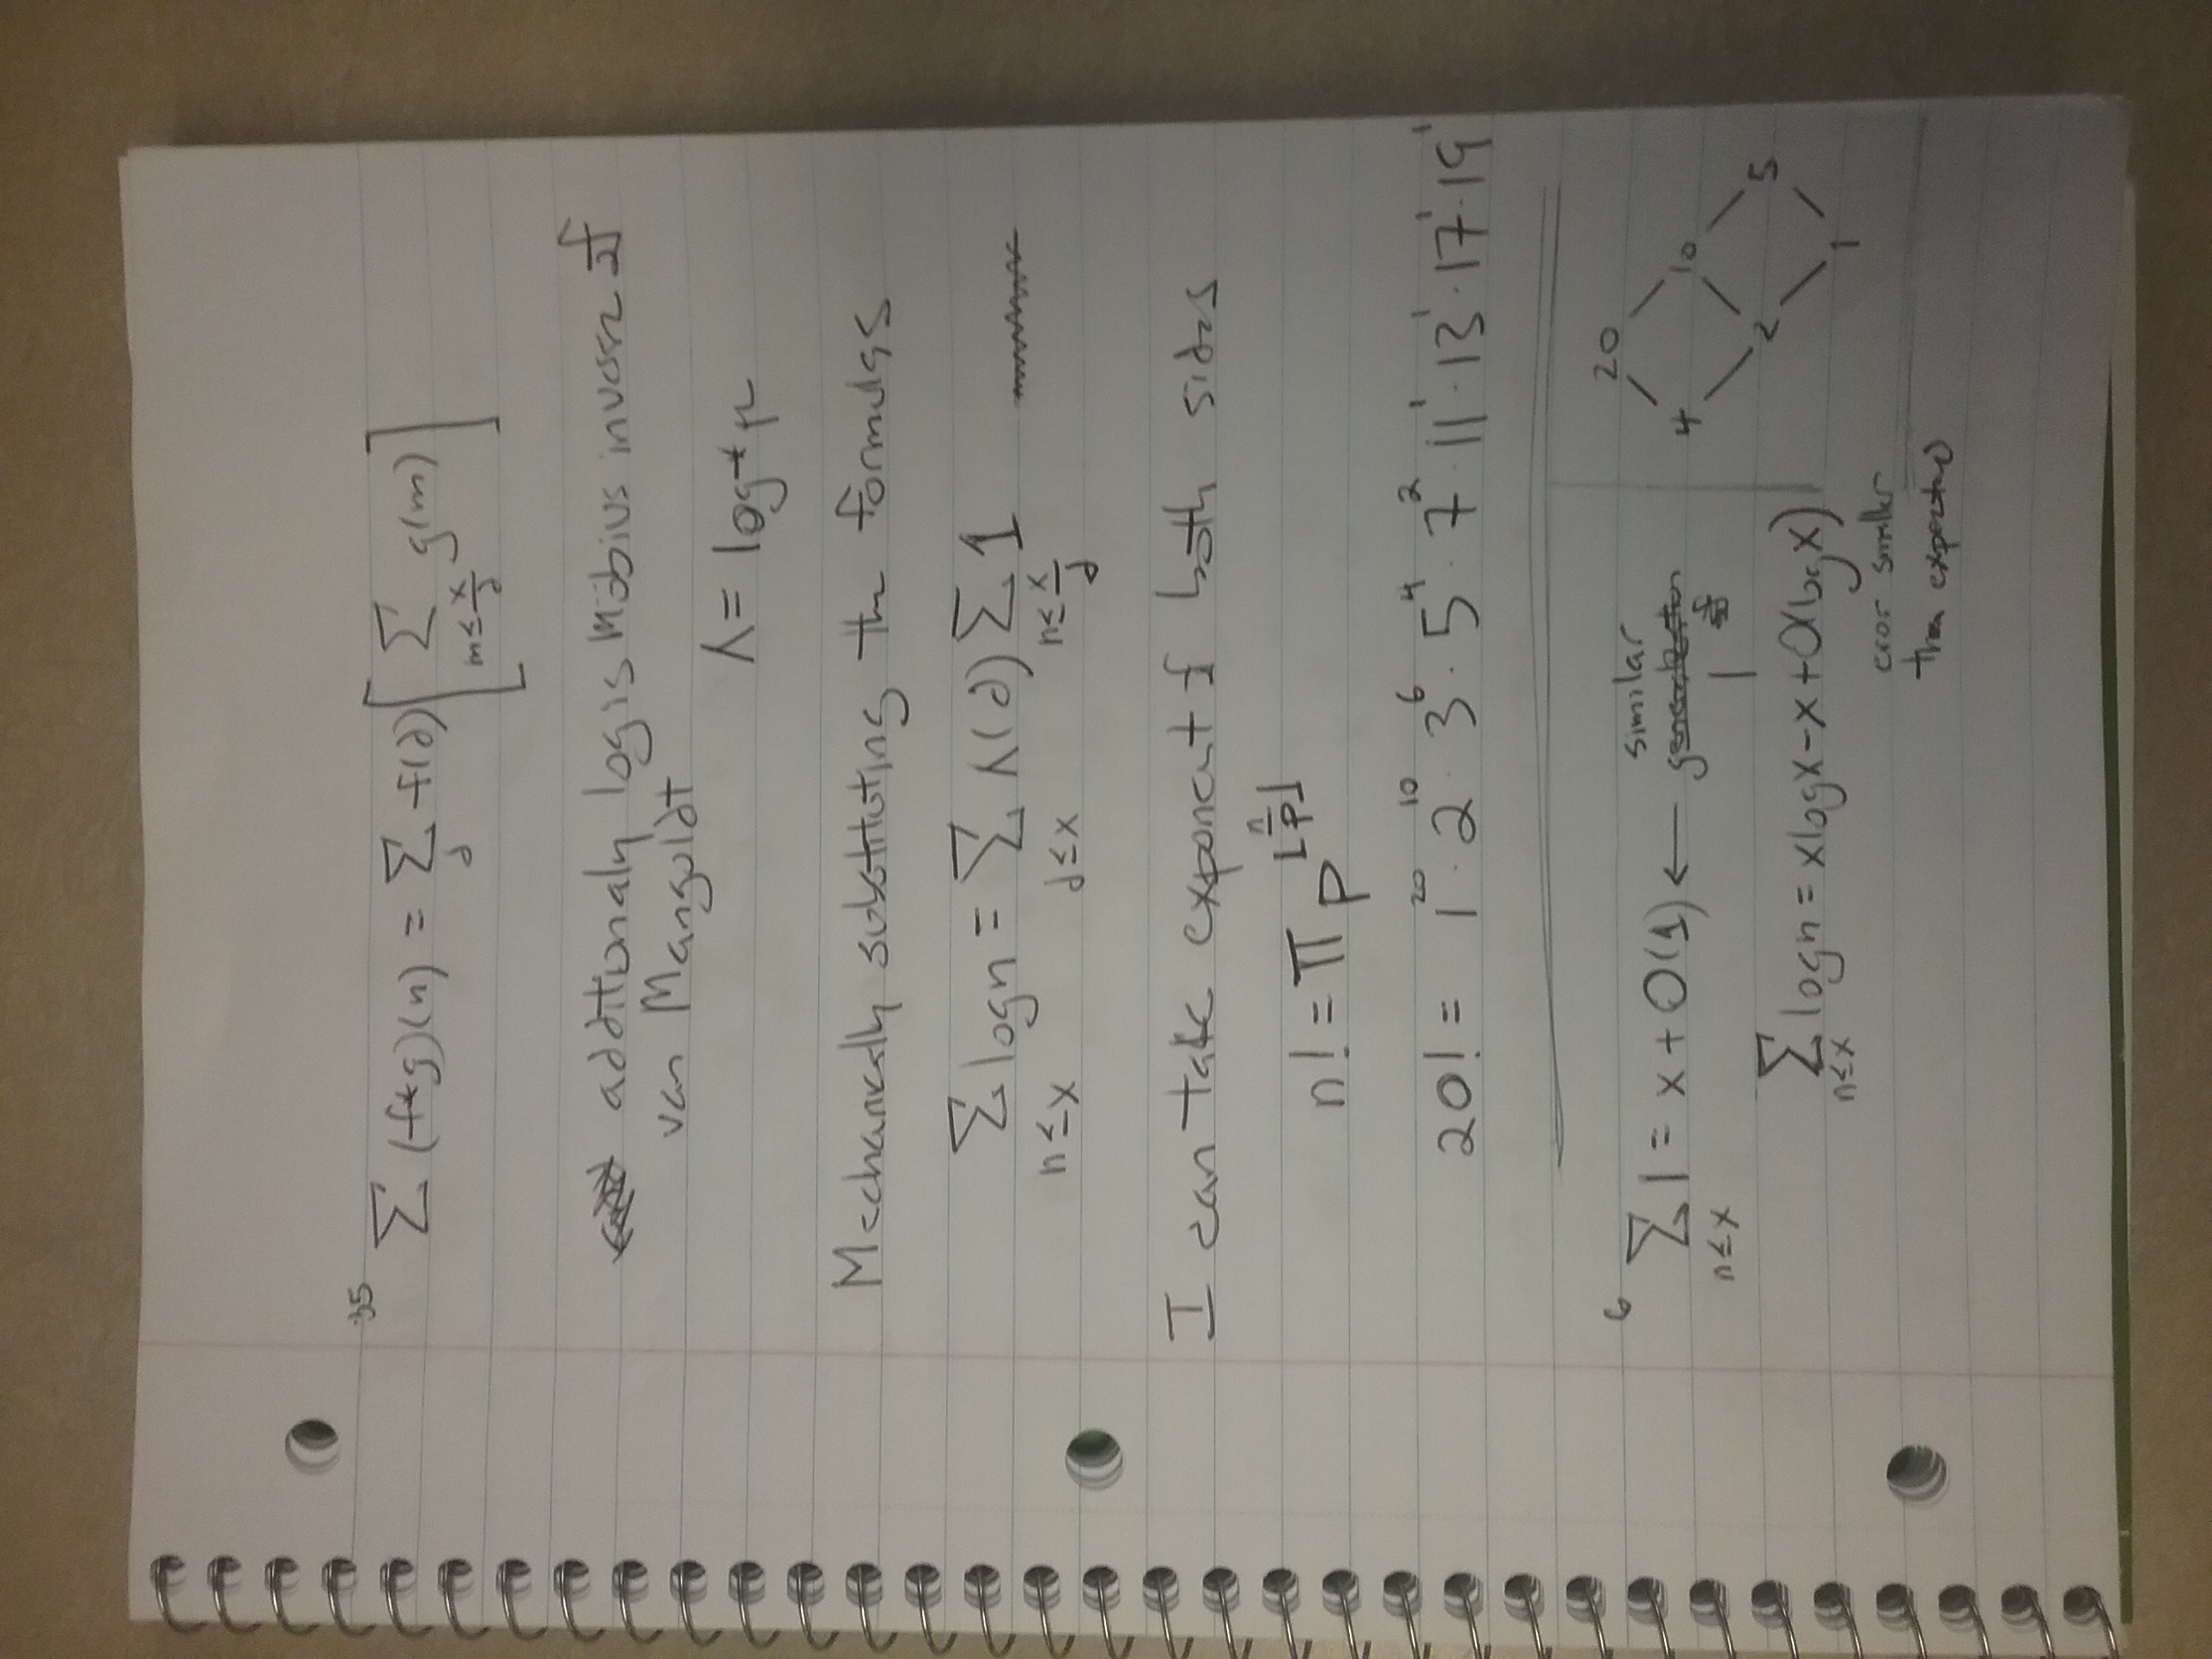 35
∑ (f*g)(n) = ∑_d f(d) [ ∑_{m≤x/d} g(m) ]
additionaly log is Möbius inverse of
van Mangoldt
Λ = log * μ
Mechanically substituting the formulas
∑_{n≤x} log n = ∑_{d≤x} Λ(d) ∑_{n≤x/d} 1
I can take exponent of both sides
n! = π p^{⌊n/p⌋}
20! = 1^{20} · 2^{10} · 3^6 · 5^4 · 7^2 · 11^1 · 13^1 · 17^1 · 19^1
6
∑_{n≤x} 1 = x + O(1) ← similar
∑_{n≤x} log n = x log x - x + O(log x)
eror smaller
than expected
20
4 10
2 5
1